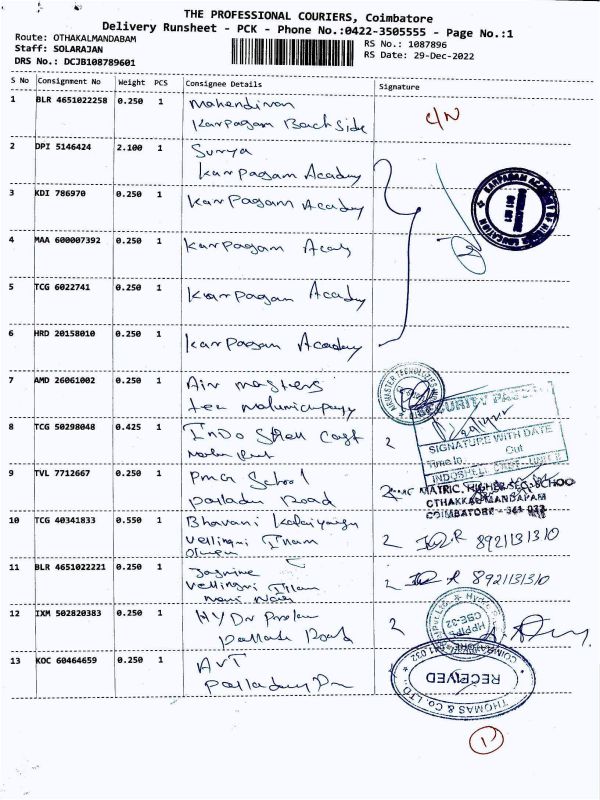 THE PROFESSIONAL COURIERS, Coimbatore
Delivery Runsheet - PCK - Phone No.:0422-3505555 - Page No.:1
Route: OTHAKALMANDABAM
Staff: SOLARAJAN
DRS No.: DCJB108789601
RS No.: 1087896
RS Date: 29-Dec-2022
S No Consignment No Weight PCS Consignee Details Signature
1 BLR 4651022258 0.250 1 Mahendiran
Karpagam Back Side
C/N
2 DPI 5146424 2.100 1 Surya
Karpagam Academy
3 KDI 786970 0.250 1 Karpagam Academy
4 MAA 600007392 0.250 1 Karpagam Acady
5 TCG 6022741 0.250 1 Karpagam Academy
6 HRD 20158010 0.250 1 Karpagam Academy
7 AMD 26061002 0.250 1 Air masters
8 TCG 50298048 0.425 1 Indo Shell Cast
2
SECURITY
SIGNATURE WITH DATE
Time In
Out
INDOSHELL
9 TVL 7712667 0.250 1 PMG School
Palladu Road
2
MATRIC. HIGHER SEC. SCHOO
OTHAKKALMANDAPAM
COIMBATORE - 641 032
10 TCG 40341833 0.550 1 Bhavani
Vellingiri Illam
2 8921131310
11 BLR 4651022221 0.250 1 Jasmine
Vellingiri Illam
2 8921131310
12 IXM 502820383 0.250 1 HYDR
Palladu Road
2
13 KOC 60464659 0.250 1 AVT
THOMAS & CO. LTD.
RECEIVED
1